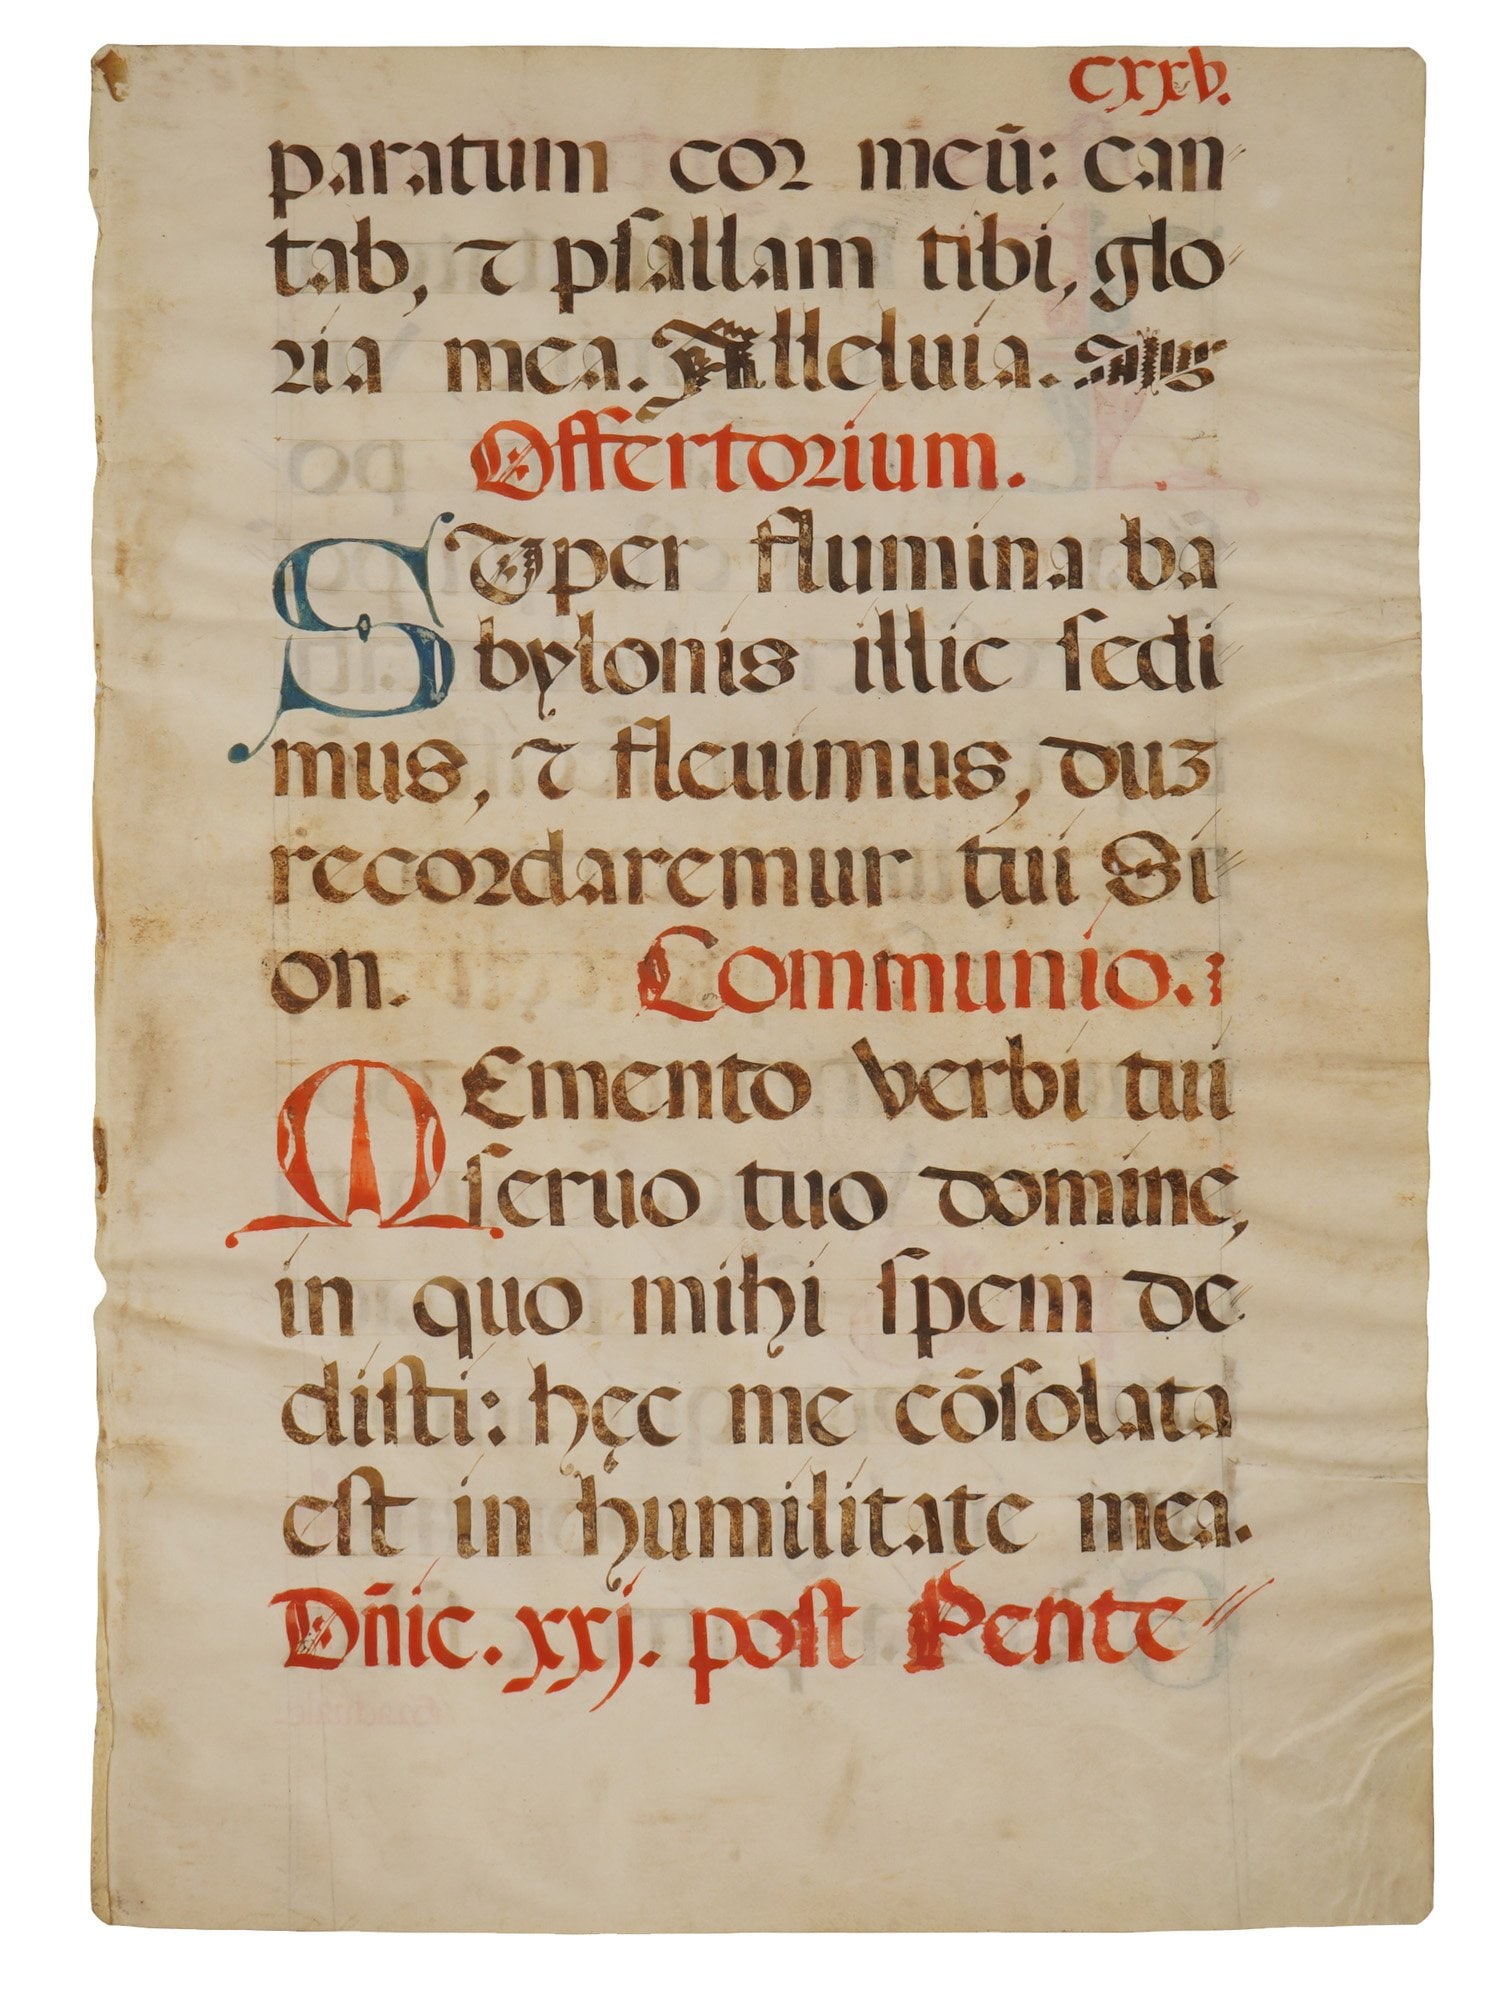 cxxv.
paratum coꝛ meū: can⸗
tab, ⁊ pſallam tibi, glo⸗
ꝛia mea. Alleluia.
Offertoꝛium.
SUper flumina ba⸗
bylonis illic ſedi
mus, ⁊ fleuimus, duꝫ
recoꝛdaremur tui Si⸗
on. Communio.
MEmento verbi tui
ſeruo tuo domine,
in quo mihi ſpem de
diſti: hęc me cōſolata
eſt in humilitate mea.
Dñic. xxj. poſt Pente⸗